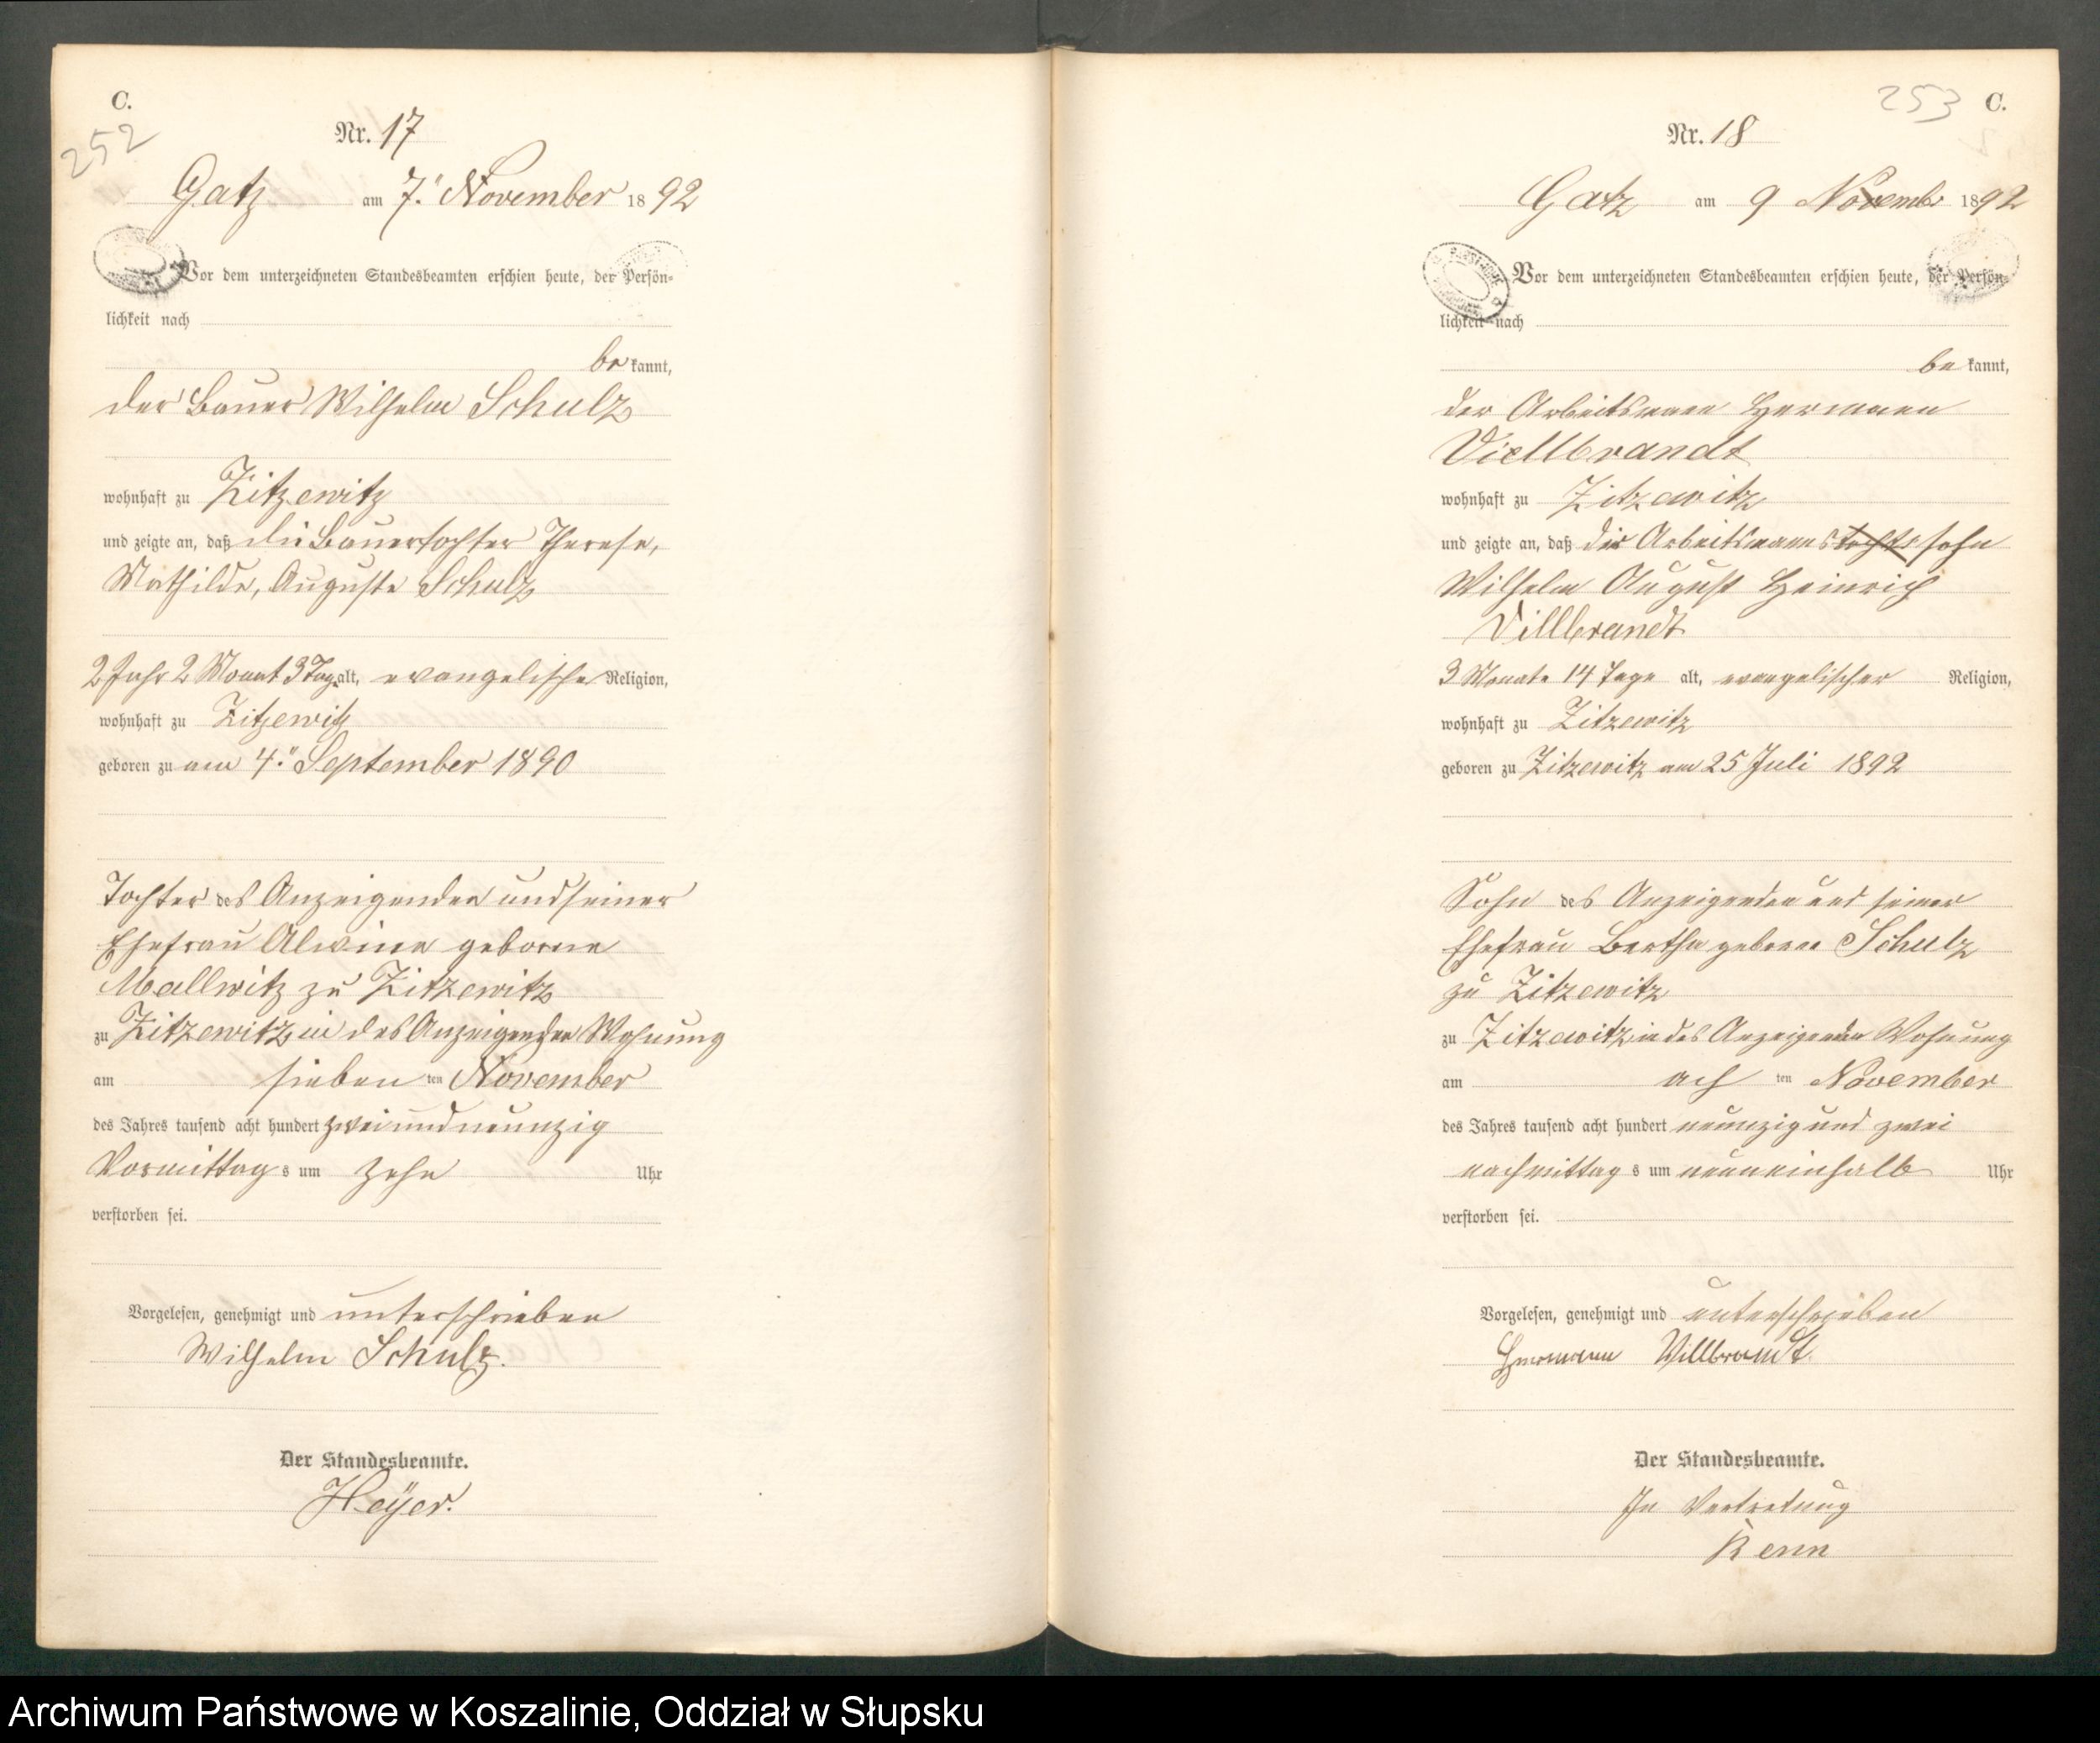 C.
252
Nr. 17
Gatz am 7. November 1892
Vor dem unterzeichneten Standesbeamten erschien heute, der Persön-
lichkeit nach
bekannt,
der Bauer Wilhelm Schulz
wohnhaft zu Zitzewitz
und zeigte an, daß die Bauertochter Therese,
Mathilde, Auguste Schulz
2 Jahr 2 Monat 3 Tag alt, evangelische Religion,
wohnhaft zu Zitzewitz
geboren zu am 4. September 1890
Tochter des Anzeigenden und seiner
Ehefrau Alwine geborne
Mallwitz zu Zitzewitz
zu Zitzewitz in des Anzeigenden Wohnung
am sieben ten November
des Jahres tausend acht hundert zweiundneunzig
Vormittags um zehn Uhr
verstorben sei.
Vorgelesen, genehmigt und unterschrieben
Wilhelm Schulz.
Der Standesbeamte.
Heÿer.
253 C.
Nr. 18
Gatz am 9 Novembr 1892
Vor dem unterzeichneten Standesbeamten erschien heute, der Persön-
lichkeit nach
bekannt,
der Arbeitsmann Hermann
Viellbrandt
wohnhaft zu Zitzewitz
und zeigte an, daß der Arbeitsmanns tochter sohn
Wilhelm August Heinrich
Villbrandt
3 Monate 14 Tage alt, evangelischer Religion,
wohnhaft zu Zitzewitz
geboren zu Zitzewitz am 25 Juli 1892
Sohn des Anzeigenden und seiner
Ehefrau Bertha geborne Schulz
zu Zitzewitz
zu Zitzewitz in des Anzeigenden Wohnung
am ach ten November
des Jahres tausend acht hundert neunzig und zwei
nachmittags um neuneinhalb Uhr
verstorben sei.
Vorgelesen, genehmigt und unterschrieben
Hermann Villbrandt.
Der Standesbeamte.
In Vertretung
Renn
Archiwum Państwowe w Koszalinie, Oddział w Słupsku